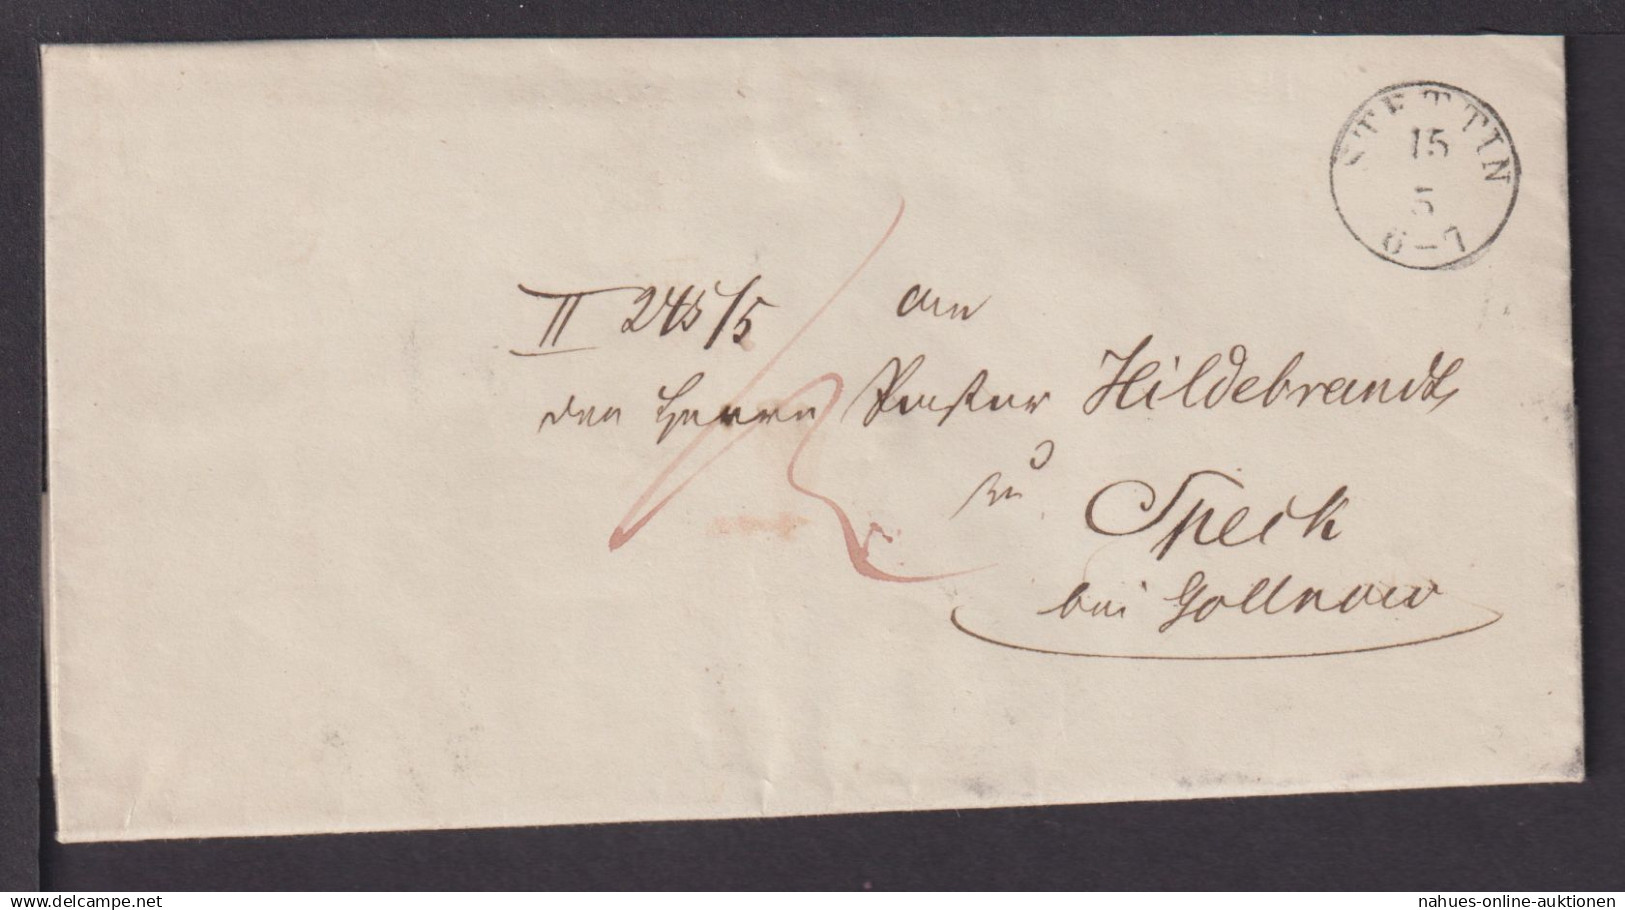 STETTIN
15
5
6–7
II 245/5
An
den Herrn Pastor Hildebrandt,
zu
Speck
bei Gollnow
delcampe.net
nahues-online-auktionen